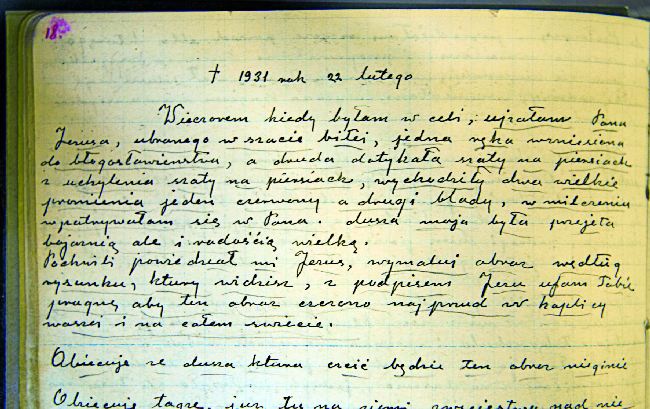 18.
† 1931 rok 22 lutego
Wieczorem kiedy byłam w celi, ujrałam Pana
Jezusa, ubranego w szacie białej, jedna ręka wzniesiona
do błogosławieństwa, a druda dotykała szaty na piersiach
z uchylenia szaty na piersiach, wychodziły dwa wielkie
promienia jeden czerwony a drugi blady, w milczeniu
wpatrywałam się w Pana. dusza moja była przejęta
bojaznią ale i radością wielką.
Pochwili powiedział mi Jezus, wymaluj obraz według
rysunku, ktury widzisz, z podpisem Jezu ufam Tobie
pragnę aby ten obraz czczono najprwud w kaplicy
waszej i na całem świecie.
Obiecuje że dusza ktura czcić będzie ten obraz nieginie
Obiecuję także, już tu na ziemi zwycięstwo nad nie